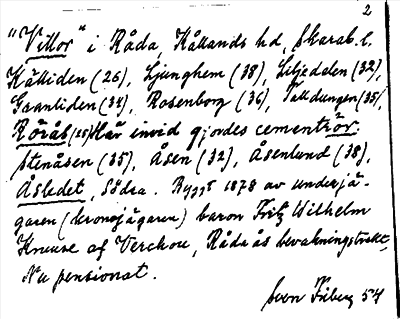 2
"Villor" i Råda, Kållands hd, Skarab. l.
Källiden (26), Ljunghem (38), Liljedalen (32),
Granliden (34), Rosenborg (36), Talldungen (35),
Rörås (25) Här invid gjordes cementrör.
Stenåsen (35), Åsen (32), Åsenlund (38),
Åsledet, Södra. Byggt 1878 av underjä-
garen (kronojägaren) baron Fritz Wilhelm
Knuse af Verchou, Råda ås bevakningstrakt,
Nu pensionat.
Sven Friberg 54